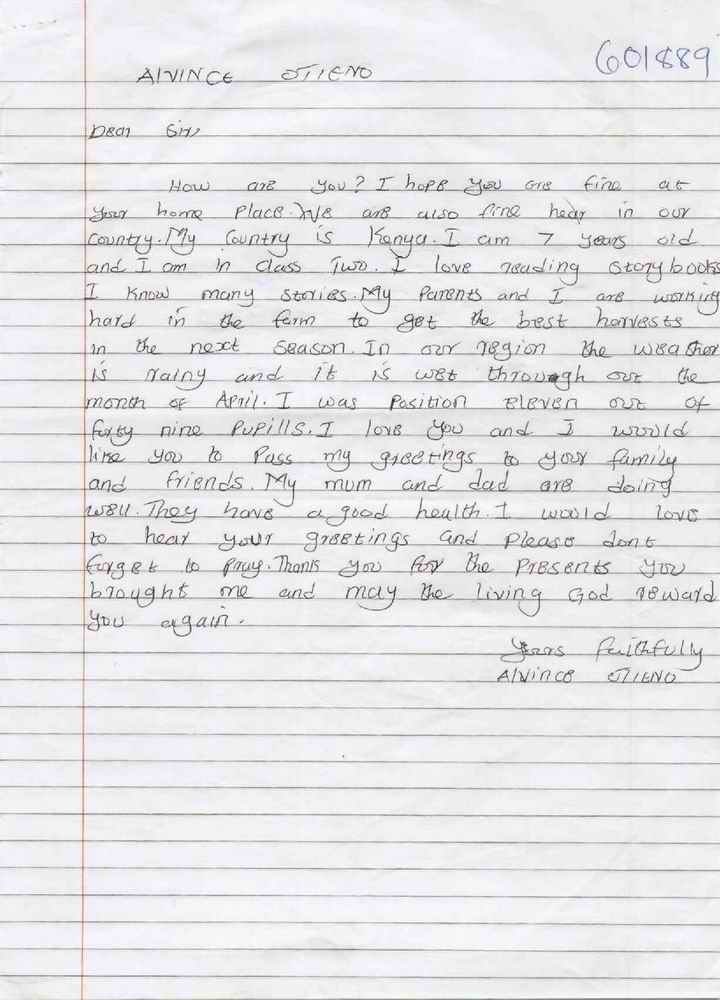 601889
Alvince OTIENO
Dear Sir,
How are you? I hope you are fine at
your home place. We are also fine hear in our
country. My country is Kenya. I am 7 years old
and I am in class Two. I love reading storybooks
I know many stories. My parents and I are working
hard in the farm to get the best harvests
in the next season. In our region the weather
is rainy and it is wet through out the
month of April. I was position eleven out of
forty nine pupills. I love you and I would
like you to pass my greetings to your family
and friends. My mum and dad are doing
well. They have a good health. I would love
to hear your greetings and please dont
forget to pray. Thanks you for the presents you
brought me and may the living God reward
you again.
Yours faithfully
Alvince OTIENO